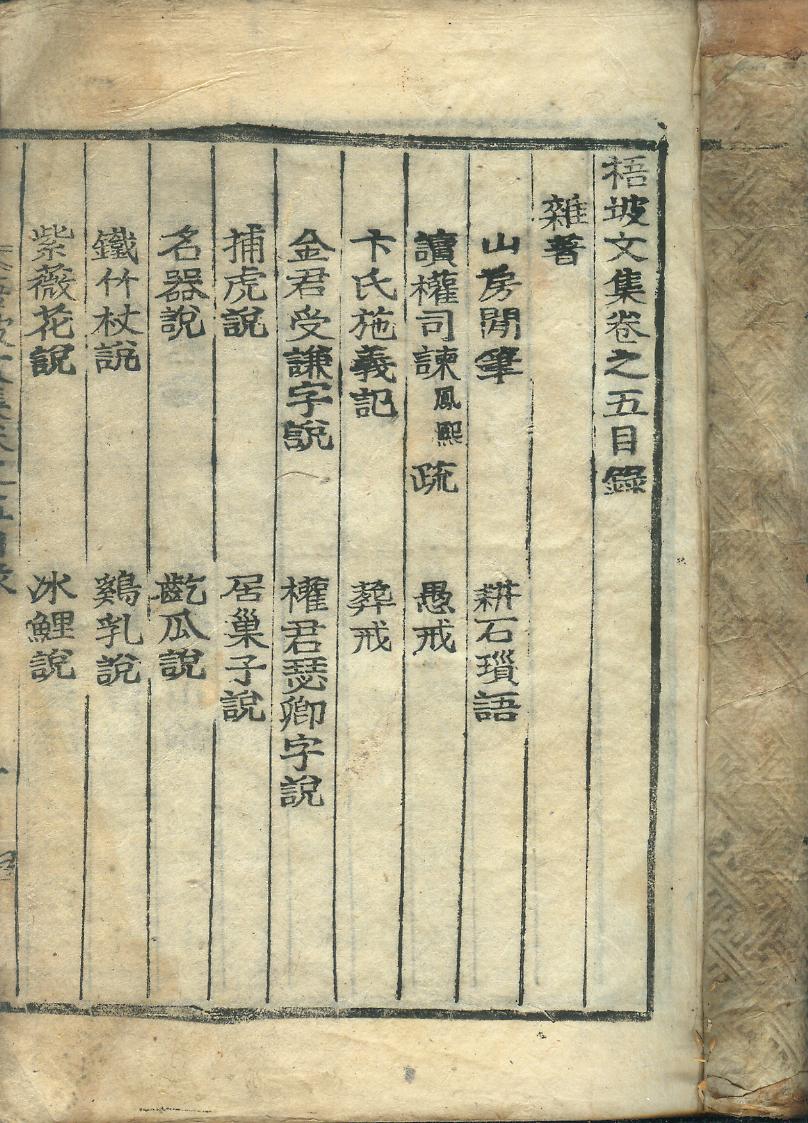 梧坡文集卷之五目錄
雜著
山房閒筆 耕石瑣語
讀權司諫鳳熙疏 愚戒
卞氏施義記 葬戒
金君受謙字說 權君瑟卿字說
捕虎說 居巢子說
名器說 齕瓜說
鐵竹杖說 鷄乳說
紫薇花說 冰鯉說